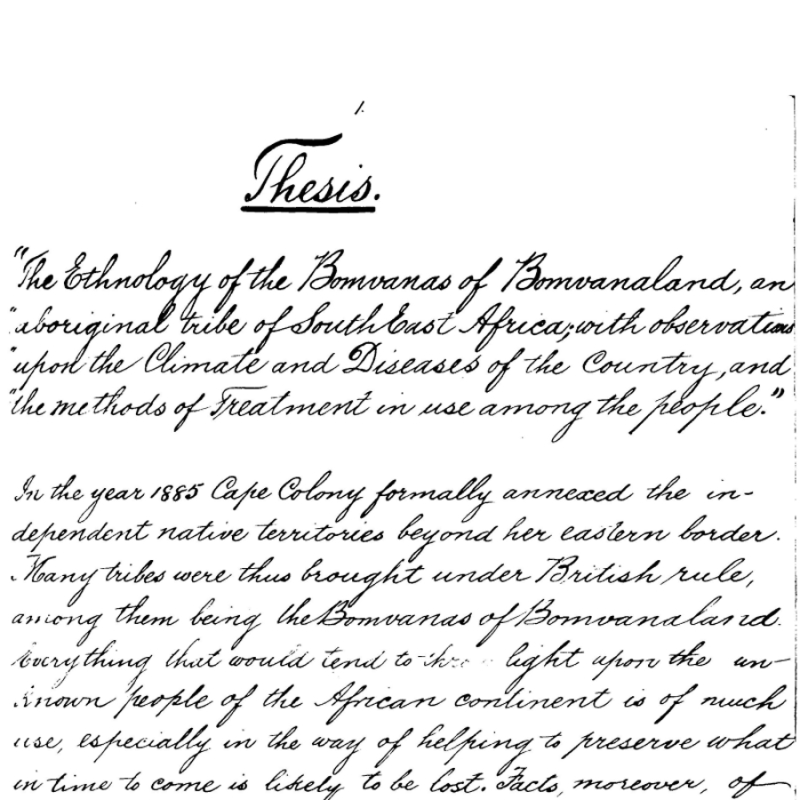 1.
Thesis.
"The Ethnology of the Bomvanas of Bomvanaland, an
"aboriginal tribe of South East Africa; with observations
"upon the Climate and Diseases of the Country, and
"the methods of Treatment in use among the people."
In the year 1885 Cape Colony formally annexed the in-
dependent native territories beyond her eastern border.
Many tribes were thus brought under British rule,
among them being the Bomvanas of Bomvanaland.
Everything that would tend to light upon the un-
known people of the African continent is of much
use, especially in the way of helping to preserve what
in time to come is likely to be lost. Facts, moreover, of